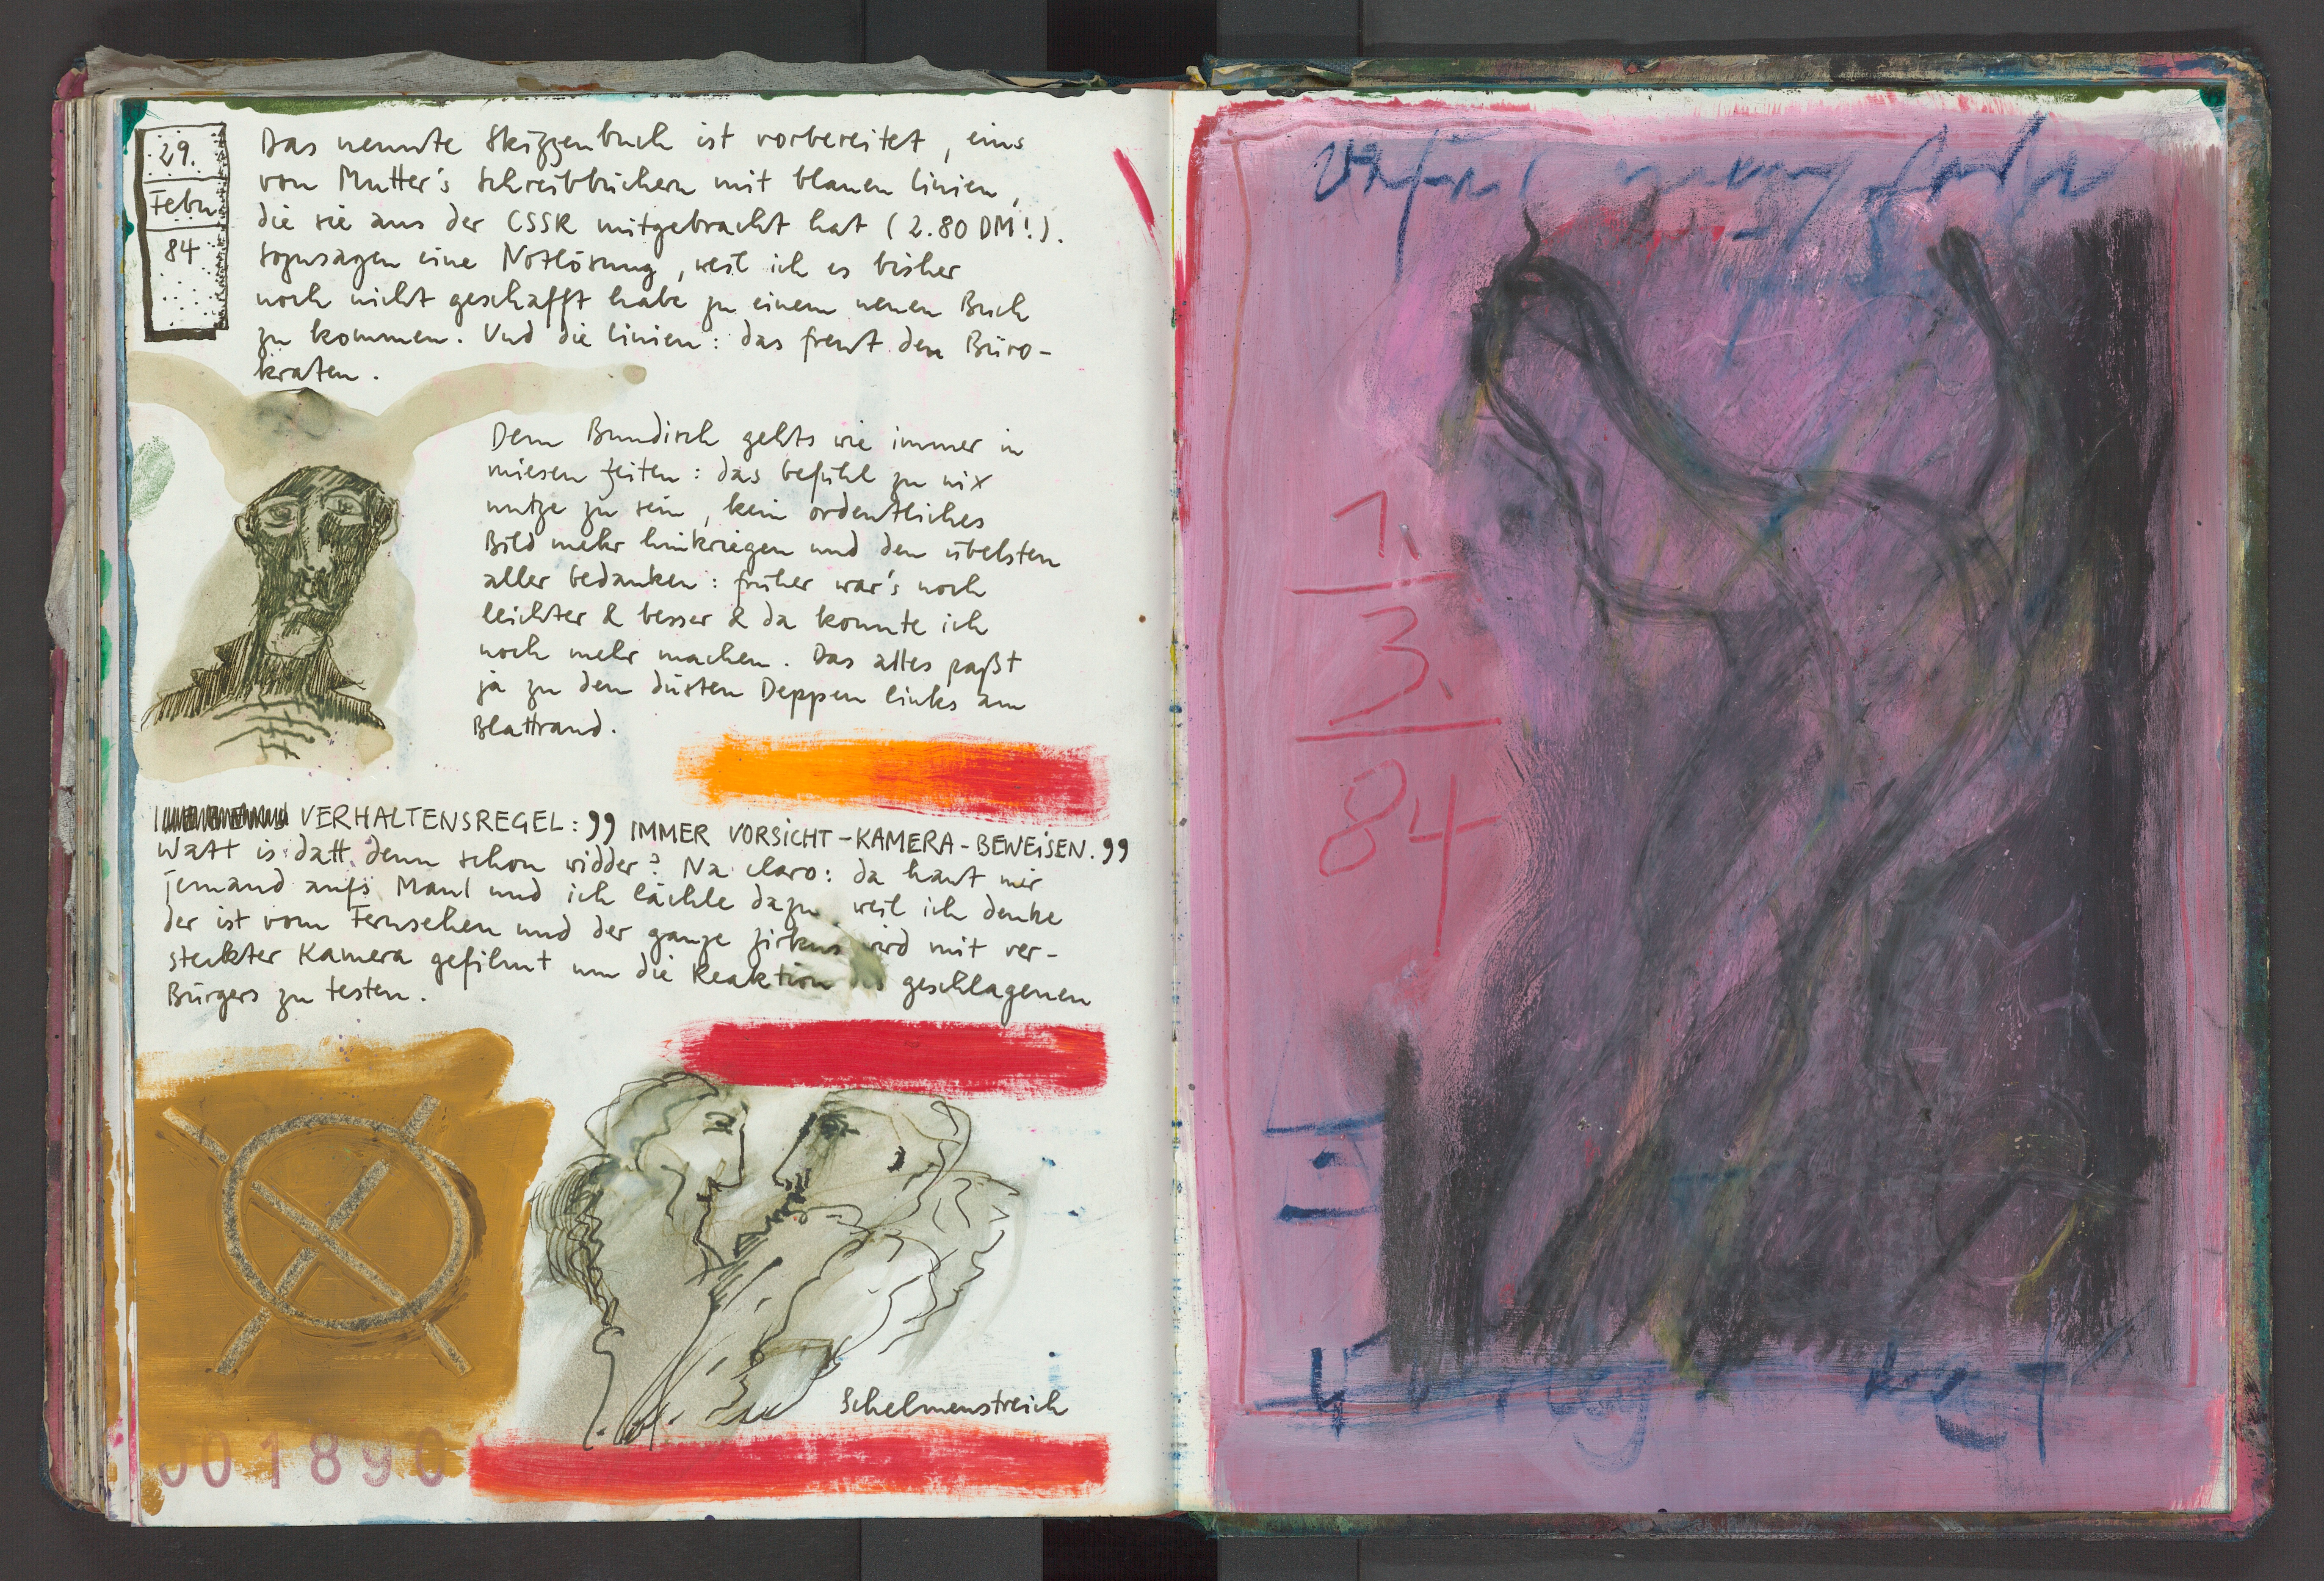 29.
Febr
84
Das neunte Skizzenbuch ist vorbereitet, eins
von Mutter's Schreibbüchern mit blauen Linien,
die sie aus der CSSR mitgebracht hat (2.80 DM!).
Sozusagen eine Notlösung, weil ich es bisher
noch nicht geschafft habe zu einem neuen Buch
zu kommen. Und die Linien: das freut den Büro-
kraten.
Dem Bundisch gehts wie immer in
miesen Zeiten: das Gefühl zu nix
nutze zu sein, kein ordentliches
Bild mehr hinkriegen und den übelsten
aller Gedanken: früher war's noch
leichter & besser & da konnte ich
noch mehr machen. Das alles paßt
ja zu dem düsten Deppen links am
Blattrand.
VERHALTENSREGEL: „IMMER VORSICHT-KAMERA-BEWEISEN.„
Watt is datt denn schon widder? Na claro: da haut mir
jemand aufs Maul und ich lächle dazu weil ich denke
der ist vom Fernsehen und der ganze Zirkus wird mit ver-
steckter Kamera gefilmt um die Reaktion des geschlagenen
Bürgers zu testen.
Schelmenstreich
001890
1.
3.
84